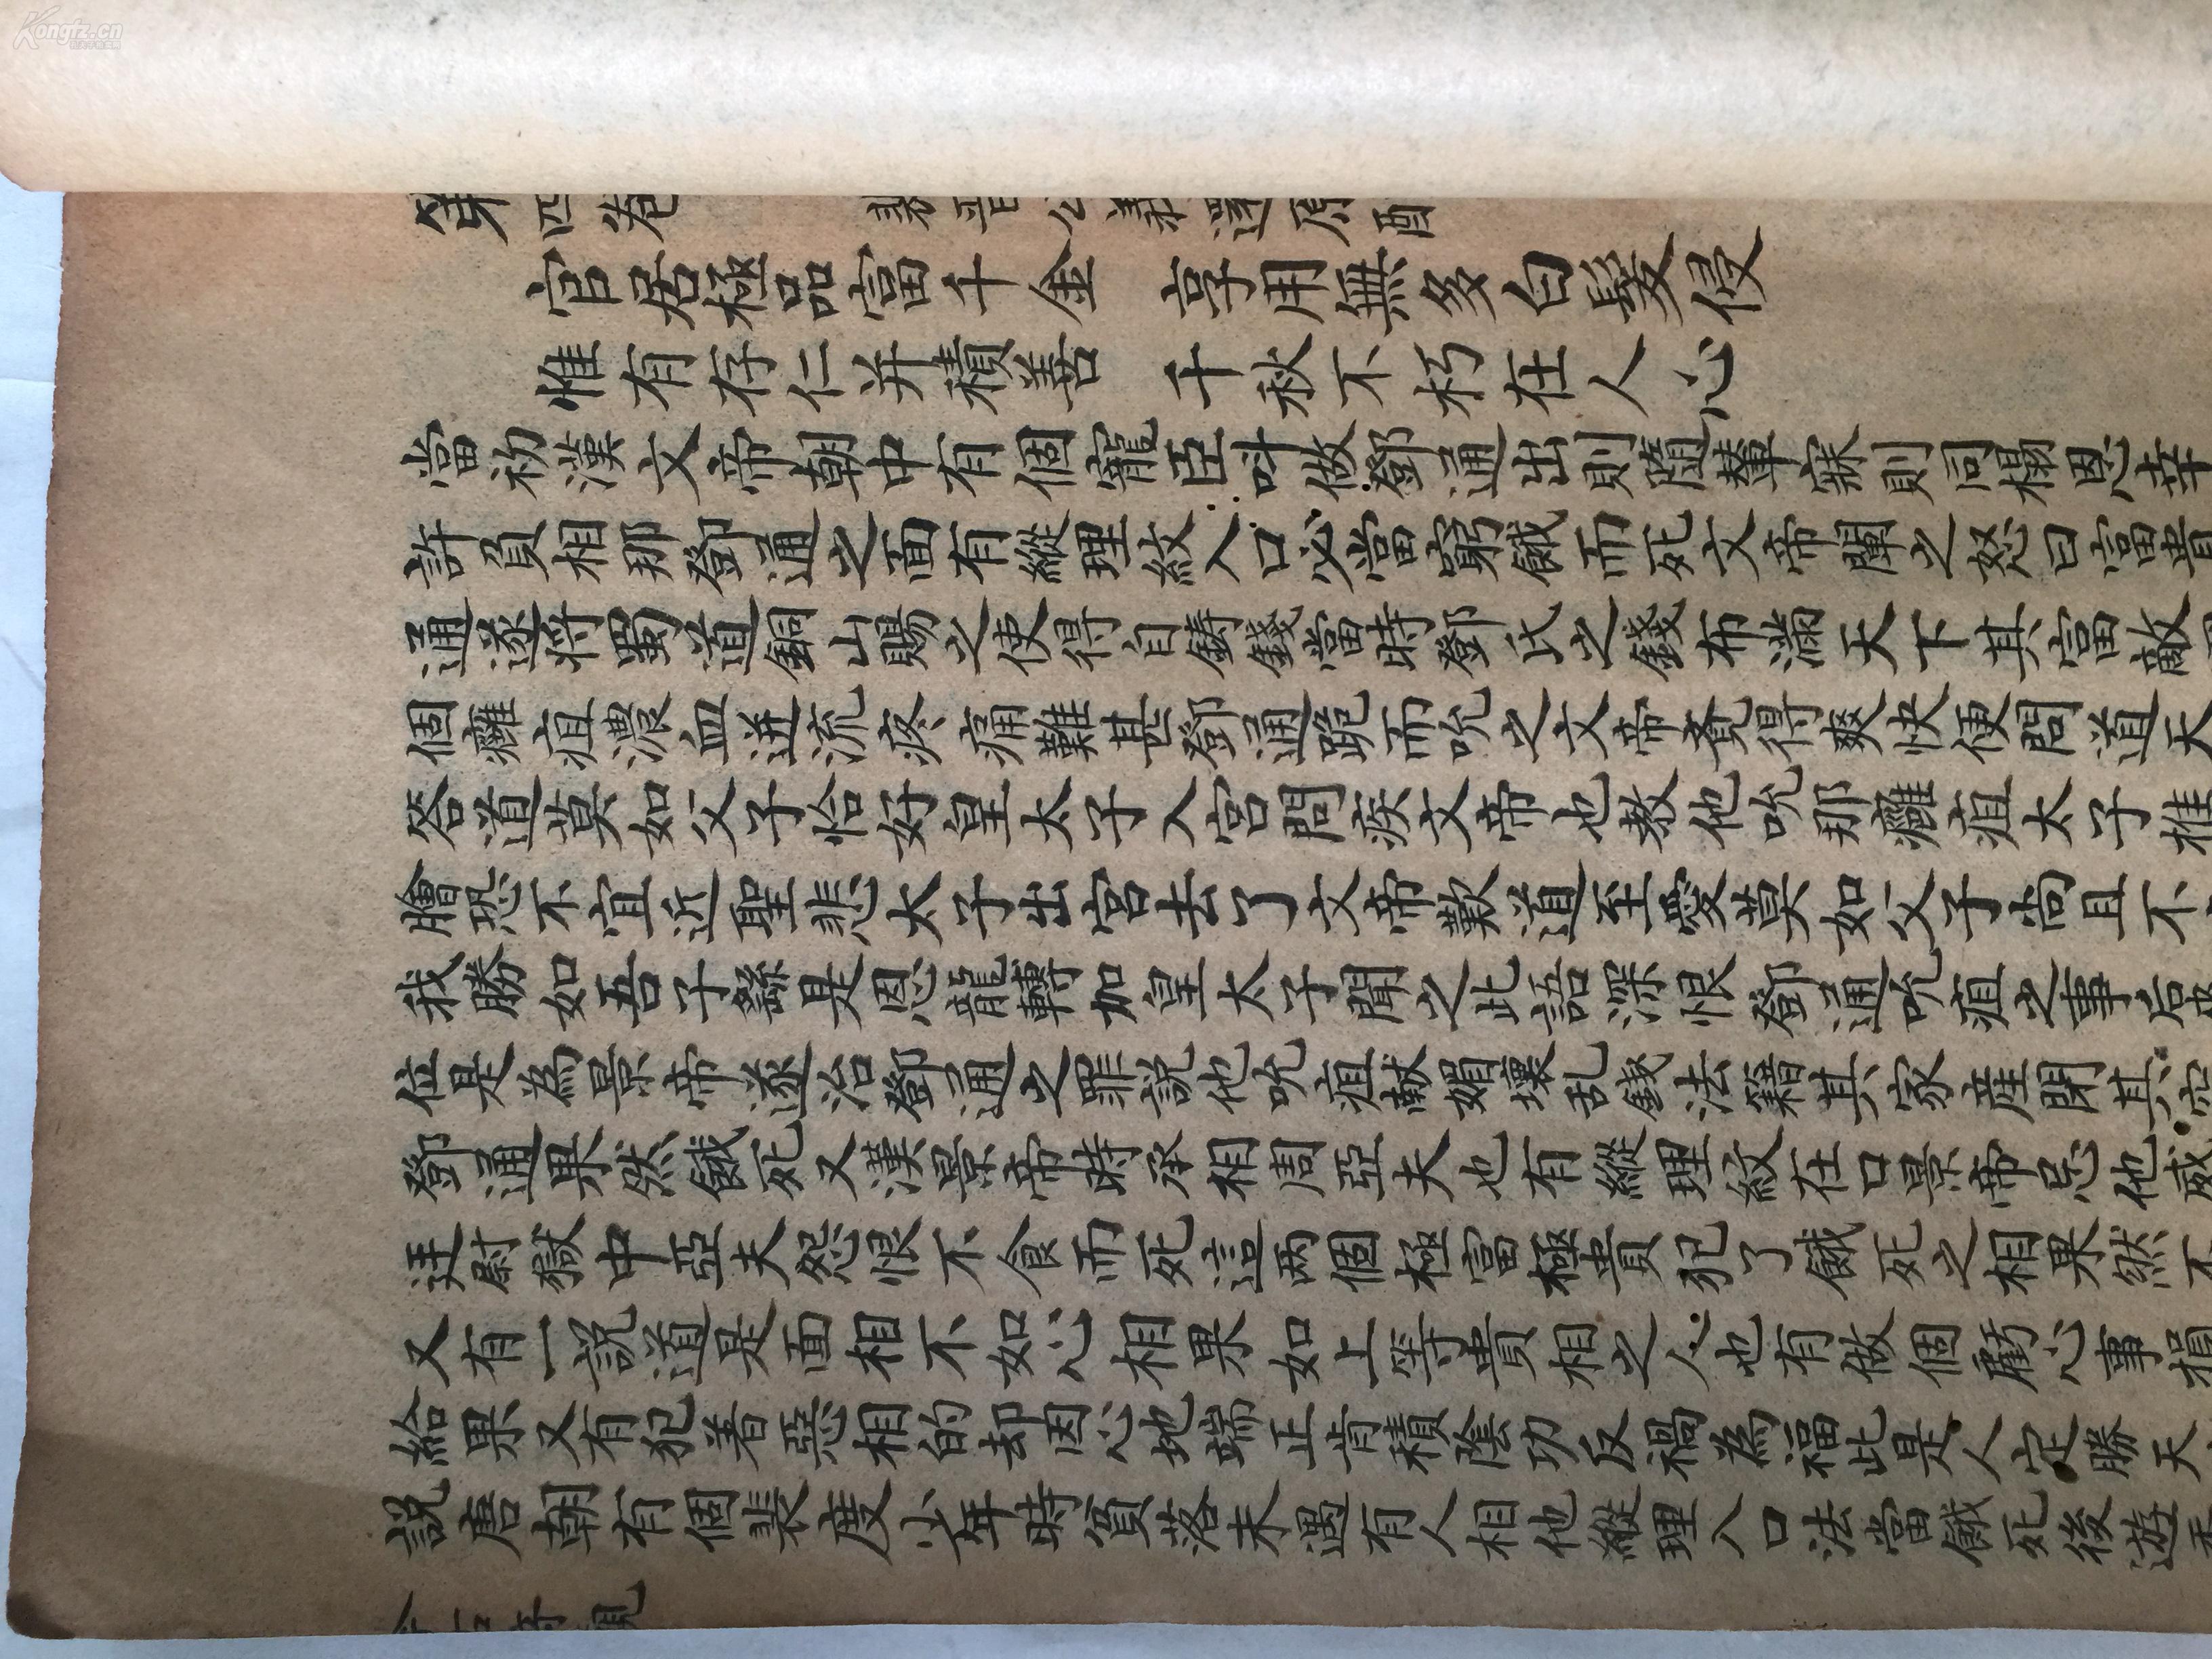 Kongfz.cn
第四卷　裴晋公義還原配
官居極品富千金　享用無多白髮侵
惟有存仁并積善　千秋不朽在人心
當初漢文帝朝中有個寵臣呌做鄧通出則隨輦寐則同榻恩幸
許負相那鄧通之面有縱理紋入口必當窮餓而死文帝聞之怒曰富貴
通遂将蜀道銅山賜之使得自鋳錢當時鄧氏之錢布滿天下其富敵
個癰疽濃血迸流疼痛難甚鄧通跪而吮之文帝覔得爽快便問道天
答道莫如父子恰好皇太子入宫問疾文帝也教他吮那癰疽太子推
膾恐不宜近聖悲太子出宫去了文帝歎道至愛莫如父子尚且不
我勝如吾子繇是恩龍轉加皇太子聞之此語深恨鄧通吮疽之事后
位是為景帝遂治鄧通之罪説他吮疽獻媚壊乱錢法籍其家産閉其
鄧通果然餓死又漢景帝時丞相周亞夫也有縱理紋在口景帝忌他威
廷尉獄中亞夫怨恨不食而死這两個極富極貴犯了餓死之相果然不
又有一説道是面相不如心相果如上等貴相之人也有做個虧心事損
給果又有犯着惡相的却因心地端正肯積陰功反禍為福此是人定勝天
説唐朝有個裴度少年時貧落未遇有人相他縱理入口法當餓死後遊
今古奇觀